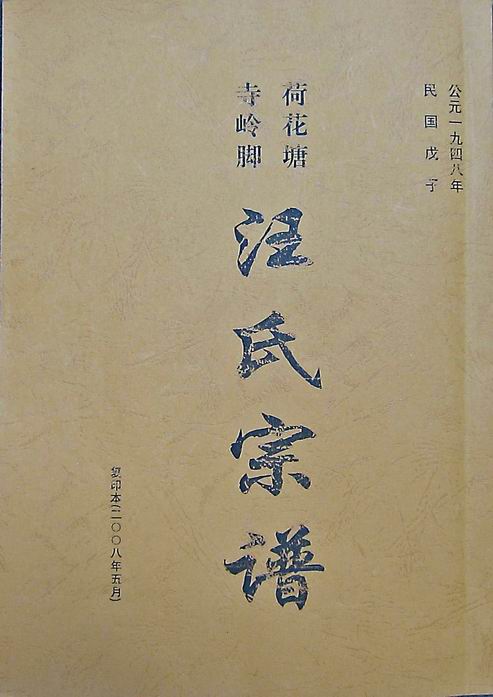 公元一九四八年
民国戊子
荷花塘
寺岭脚
汪氏宗谱
复印本(二〇〇八年五月)